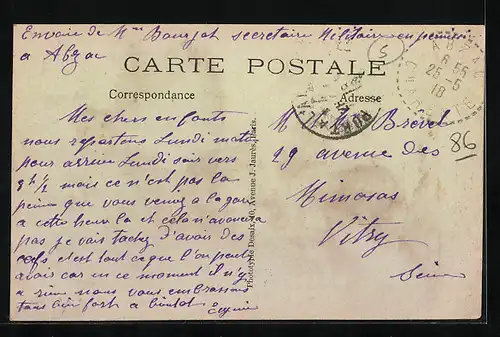 Envoie de Mr Bourjat secretaire Militaire en permission
a Abzac
CARTE POSTALE
Correspondance
Adresse
5
ABZAC
6 55
25-5
18
Mes chers enfants
nous repartons Lundi matin
pour arriver Lundi soir vers
8h 1/2 mais ce n'est pas la
peine que vous venez a la gare
a cette heure la et cela n'avancera
pas je vais tachez d'avoir des
oefs c'est tout ce que l'on peut
avoir car en ce moment il n'y
a rien nous vous embrassons
tous bien fort a bientot
M Brevet
29 avenue des
Mimosas
Vitry
Seine
86
Phototypie Desaix, 40, Avenue J. Jaurès, Paris.